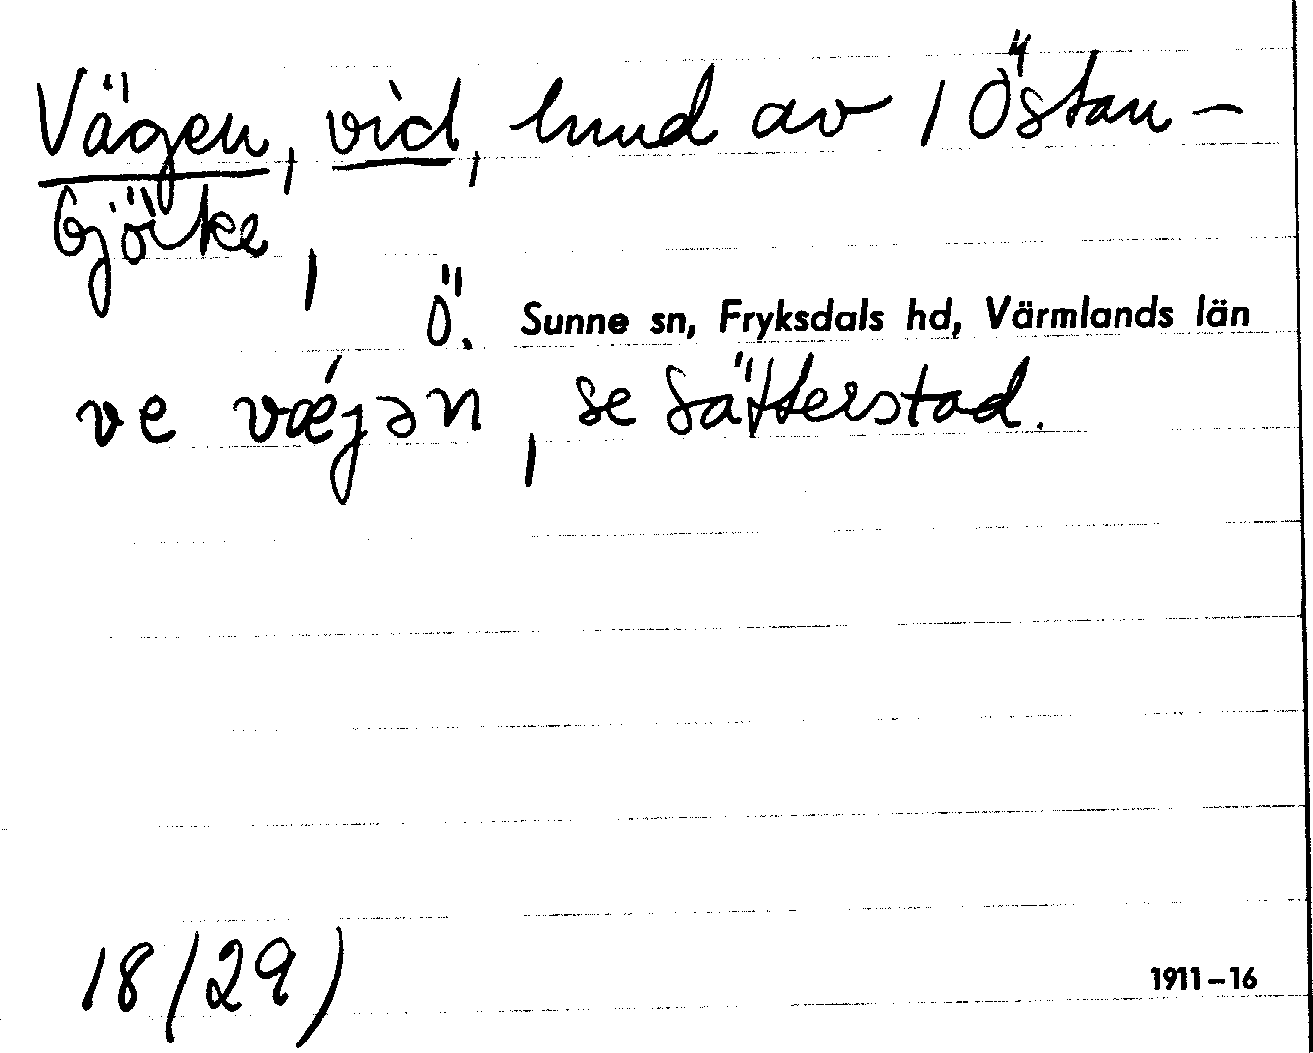 Vägen, vid, hmd av 1 Östan-
björke,
Ö. Sunne sn, Fryksdals hd, Värmlands län
ve vǽjən, se Sätterstad.
18(29)
1911-16